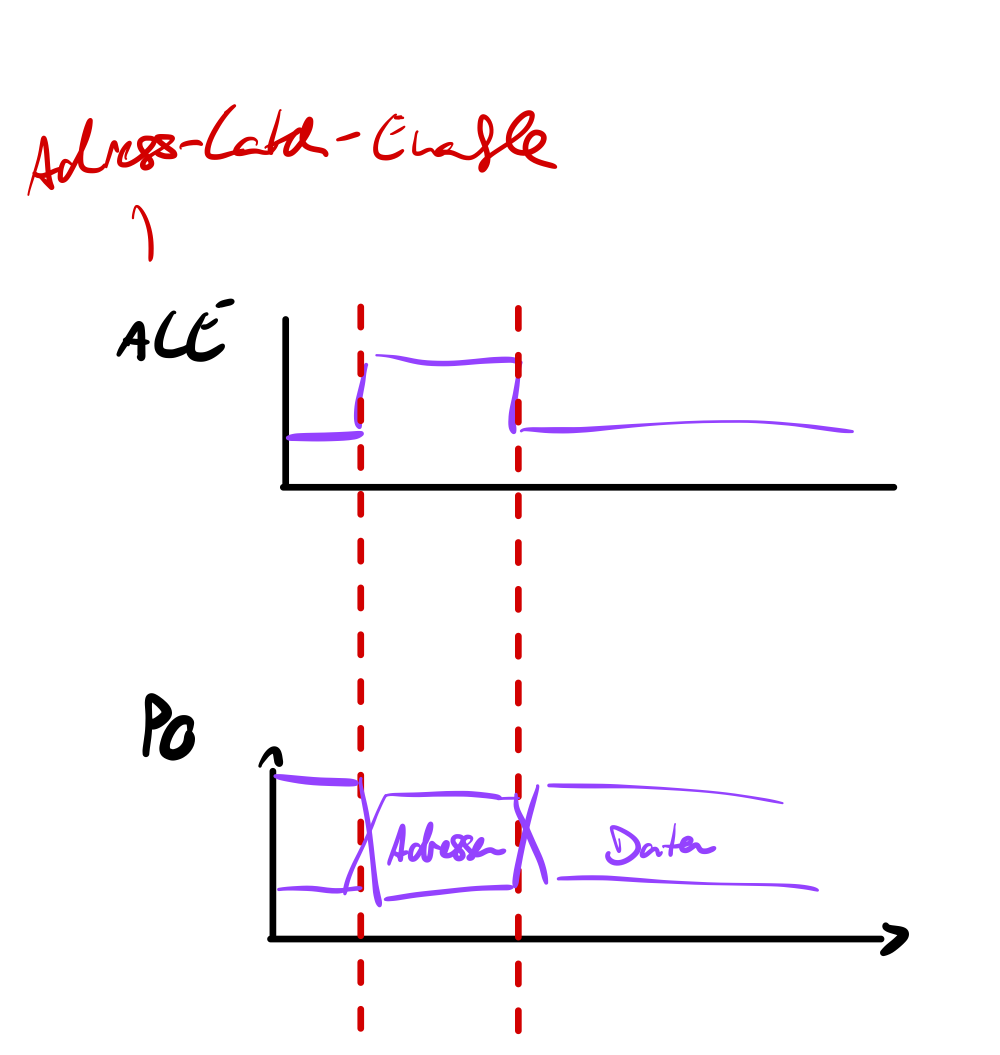 Adress-Latch-Enable
ALE
P0
Adressen
Daten